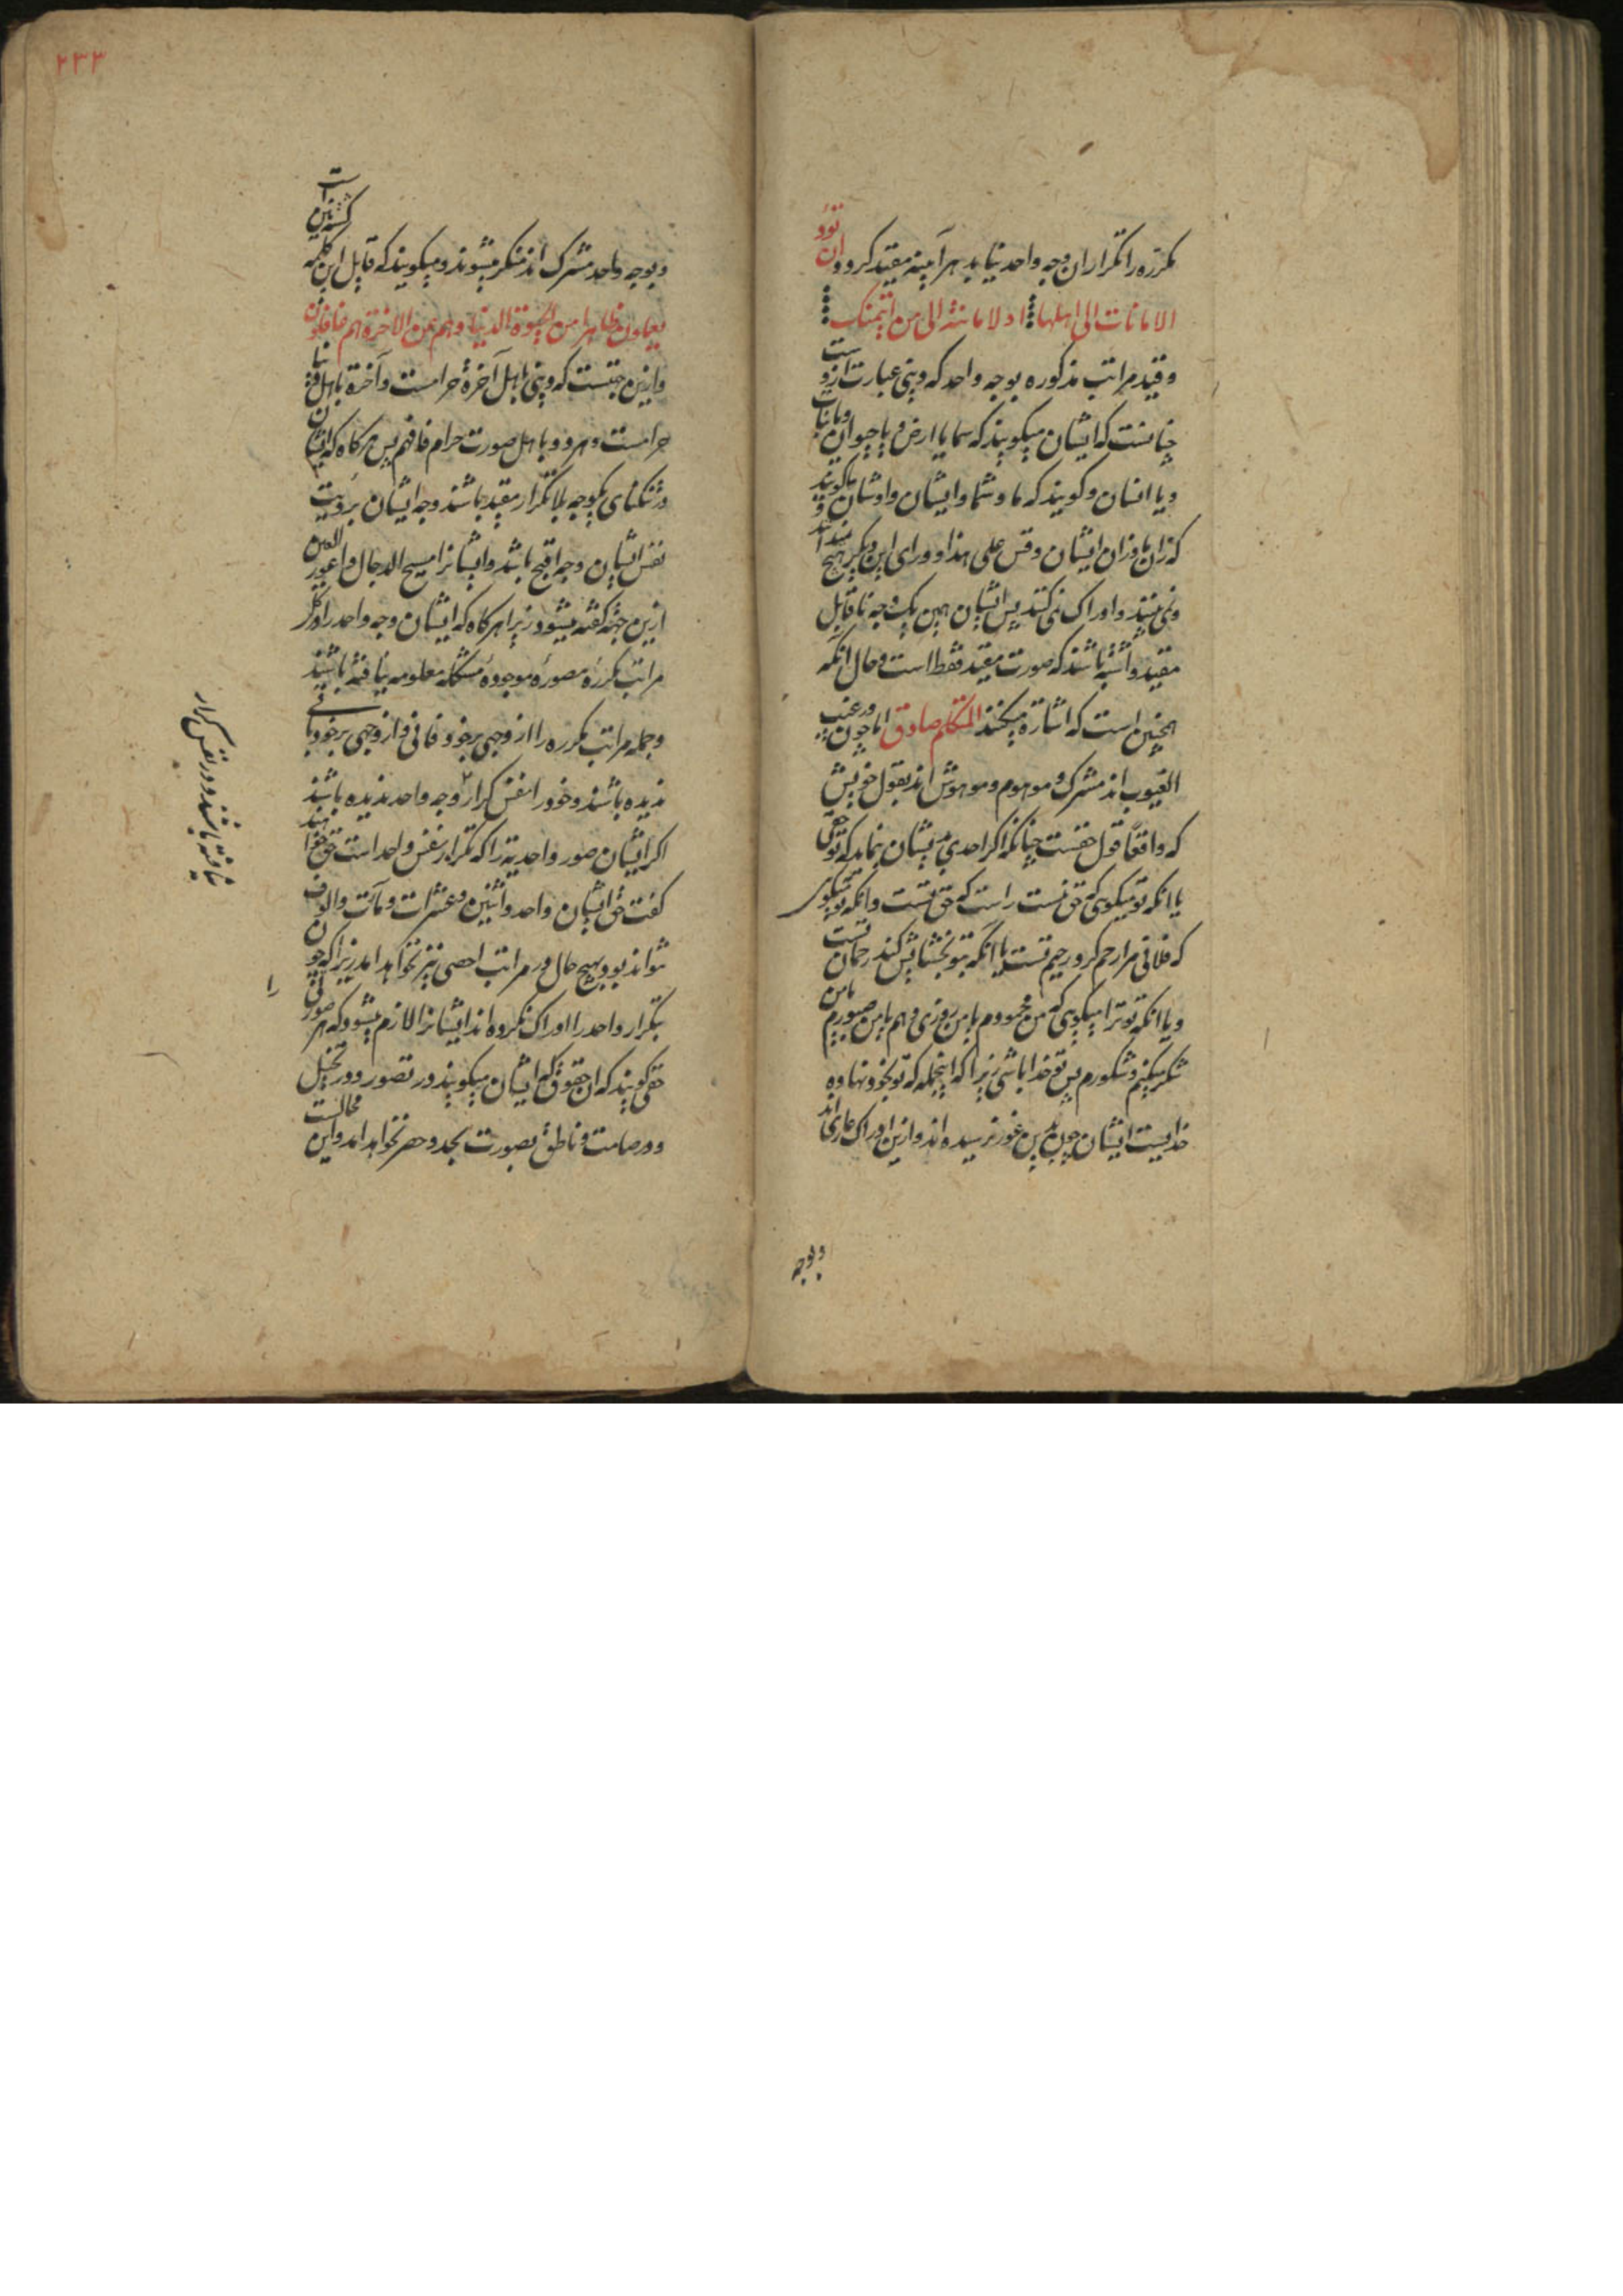 مکرره را تکرار ان وجه واحد نیابد هر آیینه مقید کرد و ان تؤدوا
الامانات الی اهلها اد الامانة الی من ائتمنک
و قید مراتب مذکوره بوجه واحد که دنیی عبارت ازوست
چنانست که ایشان میکویند که سما یا ارض و یا حیوان و یا نبات
و یا انسان و کویند که ما و شما و ایشان و اوشان
که زان ما و زان ایشان و قس علی هذا و ورای این دیکر هیچ
و نمی بینند و ادراک نمی کنند پس ایشان بهمین یک وجه نا قابل
مقید باشند که صورت مقید فقط است و حال انکه
همچنین است که اشارة میکنند المتکلم صادق اما چون در غیب
الغیوب اند مشرک و موهوم و مدهوش اند بقول خویش
که واقعا قول حقست چنانکه اکر احدی بایشان بنماید که تو حقی
یا انکه تو میکویی که حق منست راست که حق تست و انکه تو میکویی
که فلانی مرا رحم کرد رحیم تست یا انکه بتو بخشایش کند رحمان تست
و یا انکه تو ترا میکویی که من محمودم با من روزی دهم یا من صبورم یا من
شکر میکنم و شکورم پس تو خدا باشی زیرا که اینجمله که تو بخود نهاده
خداییست ایشان چون بدین غور نرسیده اند و ازین ادراک عاری اند
و بوجه
۲۳۳
و بوجه واحد مشرک اند منکر میشوند و میکویند که قایل این کلمه کشتنین است
یعلمون ظاهرا من الحیوة الدنیا و هم عن الاخرة هم غافلون
و ازین جهتست که دنیی با اهل آخرة حرامست و آخرة با اهل دنیا
حرامست و هر دو با اهل صورت حرام فافهم پس هر کاه که ایشان
در تنکنای یکوجه بلا تکرار مقید باشند وجه ایشان برؤیت
نفس ایشان وجه اقبح باشد و ایشانرا مسیح الدجال و اعور العین
ازین جهة کفته میشود زیرا هر کاه که ایشان وجه واحد را در کل
مراتب مکررۀ مصورۀ موجودۀ مشکله معلومه نیافته باشند
و جمله مراتب مکرره را از وجهی بر خود فانی و از وجهی بر خود باقی
ندیده باشند و خود را نفس تکرار وجه واحد ندیده باشند
اکر ایشان صور واحدیة را که تکرار نفس واحد است حق خواهند
کفت حق ایشان واحد و اثنین و عشرات و مآت و الوف
تواند بود و بهیچ حال در مراتب احصی نیز نخواهد امد زیرا که چون
بتکرار واحد را ادراک نکرده اند ایشانرا لازم میشود که هر صورتی را
حقی کویند که ان حقوق که ایشان میکویند در تصور و در تخیل
و در صامت و ناطق بصورت بحد و حصر نخواهد امد و این محالست
نیافته باشند و در نفس تکرار